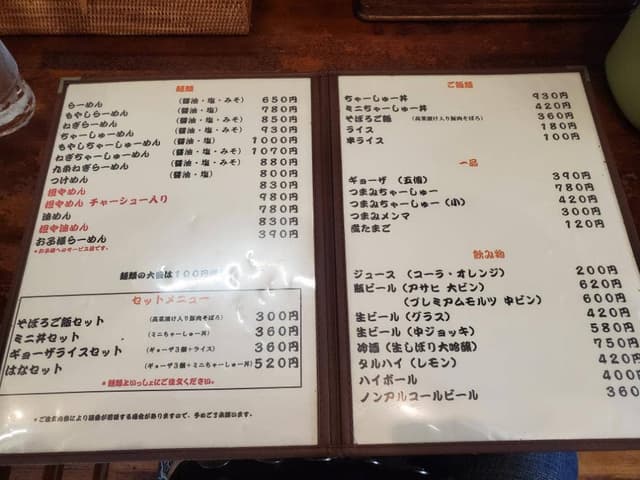 麺類
らーめん (醤油・塩・みそ) 650円
もやしらーめん (醤油・塩) 780円
ねぎらーめん (醤油・塩・みそ) 850円
ちゃーしゅーめん (醤油・塩・みそ) 930円
もやしちゃーしゅーめん (醤油・塩) 1000円
ねぎちゃーしゅーめん (醤油・塩・みそ) 1070円
九条ねぎらーめん (醤油・塩・みそ) 880円
つけめん (醤油・塩) 800円
担々めん 830円
担々めん チャーシュー入り 980円
油めん 780円
担々油めん 830円
お子様らーめん 390円
*お子様へのサービス品です。
麺類の大盛は100円
セットメニュー
そぼろご飯セット (高菜漬け入り豚肉そぼろ) 300円
ミニ丼セット (ミニちゃーしゅー丼) 360円
ギョーザライスセット (ギョーザ3個+ライス) 360円
はなセット (ギョーザ3個+ミニちゃーしゅー丼) 520円
*麺類といっしょにご注文ください。
*ご注文内容により順番が前後する場合がありますので、予めご了承願います。
ご飯類
ちゃーしゅー丼 930円
ミニちゃーしゅー丼 420円
そぼろご飯 (高菜漬け入り豚肉そぼろ) 360円
ライス 180円
半ライス 100円
一品
ギョーザ (五個) 390円
つまみちゃーしゅー 780円
つまみちゃーしゅー (小) 420円
つまみメンマ 300円
煮たまご 120円
飲み物
ジュース (コーラ・オレンジ) 200円
瓶ビール (アサヒ 大ビン) 620円
(プレミアムモルツ 中ビン) 600円
生ビール (グラス) 420円
生ビール (中ジョッキ) 580円
冷酒 (生しぼり大吟醸) 750円
タルハイ (レモン) 420円
ハイボール 400円
ノンアルコールビール 360